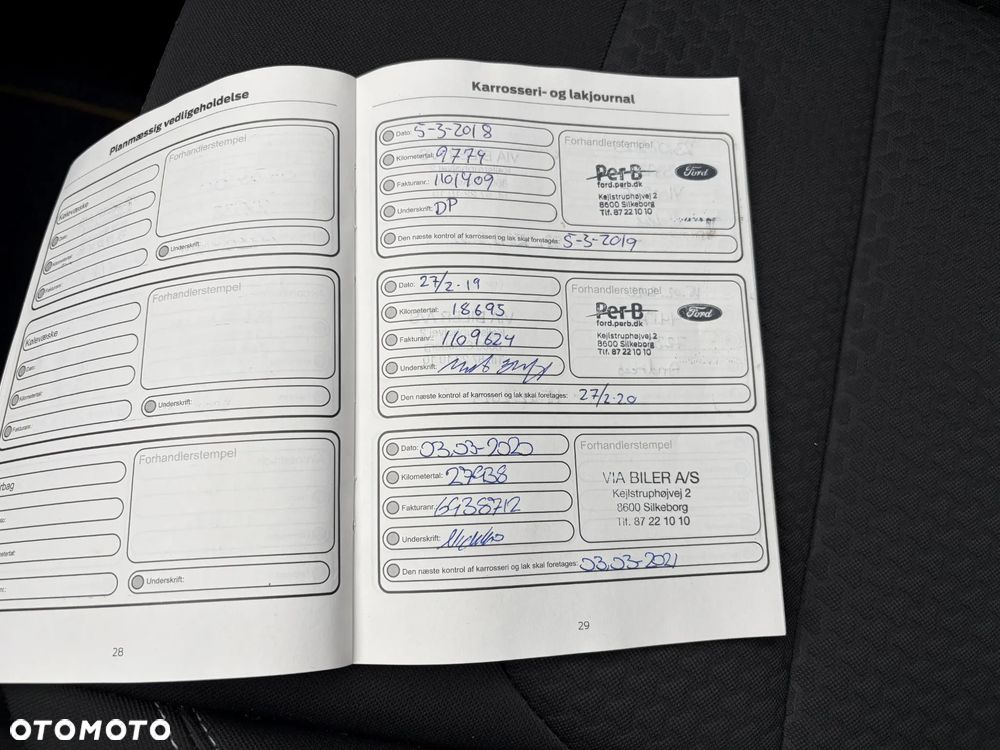 Planmæssig vedligeholdelse
Forhandlerstempel
Kølevæske
Dato:
Kilometertal:
Fakturanr.:
Underskrift:
Forhandlerstempel
Kølevæske
Dato:
Kilometertal:
Fakturanr.:
Underskrift:
Forhandlerstempel
Underskrift:
28
Karrosseri- og lakjournal
Dato: 5-3-2018
Kilometertal: 9774
Fakturanr.: 1101409
Underskrift: DP
Forhandlerstempel
Per B
Ford
ford.perb.dk
Kejlstruphøjvej 2
8600 Silkeborg
Tlf. 87 22 10 10
Den næste kontrol af karrosseri og lak skal foretages: 5-3-2019
Dato: 27/2-19
Kilometertal: 18695
Fakturanr.: 1109624
Underskrift:
Forhandlerstempel
Per B
Ford
ford.perb.dk
Kejlstruphøjvej 2
8600 Silkeborg
Tlf. 87 22 10 10
Den næste kontrol af karrosseri og lak skal foretages: 27/2-20
Dato: 03.03-2020
Kilometertal: 27938
Fakturanr.: 6938712
Underskrift:
Forhandlerstempel
VIA BILER A/S
Kejlstruphøjvej 2
8600 Silkeborg
Tlf. 87 22 10 10
Den næste kontrol af karrosseri og lak skal foretages: 03.03-2021
29
OTOMOTO